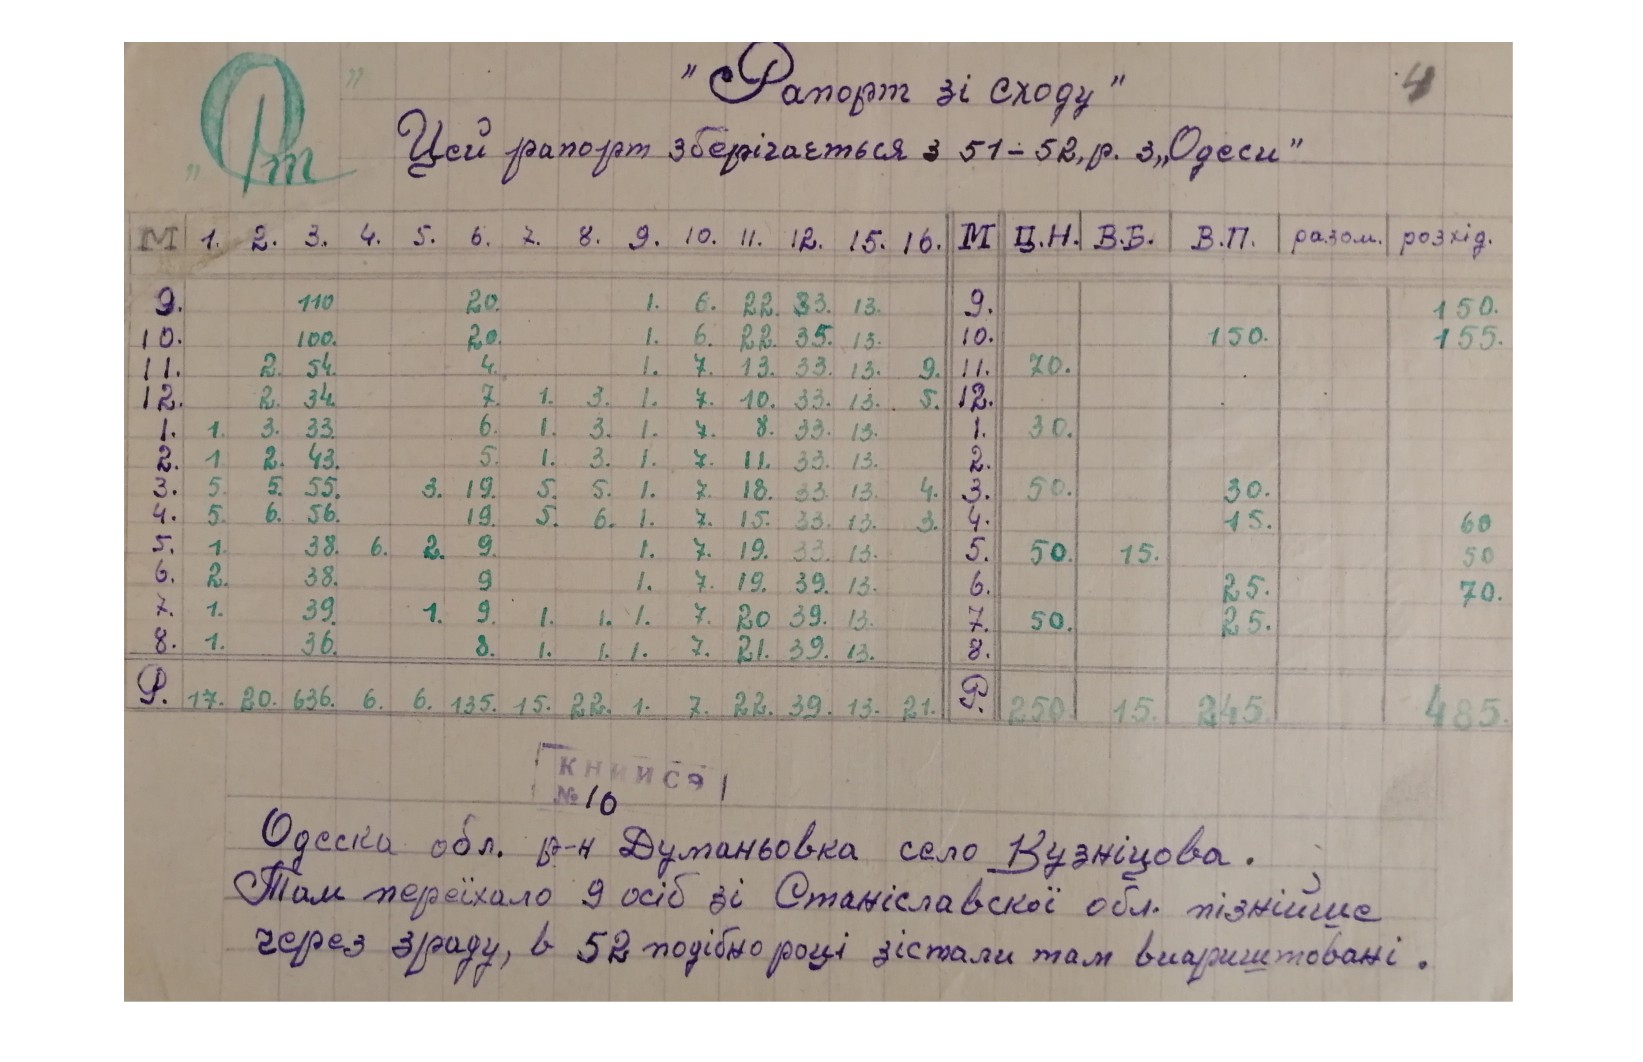 „От" "Рапорт зі сходу" 4
Цей рапорт зберігається з 51–52, р. з „Одеси"
М 1. 2. 3. 4. 5. 6. 7. 8. 9. 10. 11. 12. 15. 16. М Ц.Н. В.Б. В.П. разом. розхід.
9. 110 20. 1. 6. 22. 33. 13. 9. 150.
10. 100. 20. 1. 6. 22. 35. 13. 10. 150. 155.
11. 2. 54. 4. 1. 7. 13. 33. 13. 9. 11. 70.
12. 2. 34. 7. 1. 3. 1. 7. 10. 33. 13. 5. 12.
1. 1. 3. 33. 6. 1. 3. 1. 7. 8. 33. 13. 1. 30.
2. 1. 2. 43. 5. 1. 3. 1. 7. 11. 33. 13. 2.
3. 5. 5. 55. 3. 19. 5. 5. 1. 7. 18. 33. 13. 4. 3. 50. 30.
4. 5. 6. 56. 19. 5. 6. 1. 7. 15. 33. 13. 3. 4. 15. 60
5. 1. 38. 6. 2. 9. 1. 7. 19. 33. 13. 5. 50. 15. 50
6. 2. 38. 9 1. 7. 19. 39. 13. 6. 25. 70.
7. 1. 39. 1. 9. 1. 1. 1. 7. 20 39. 13. 7. 50. 25.
8. 1. 36. 8. 1. 1. 1. 7. 21. 39. 13. 8.
Р. 17. 20. 636. 6. 6. 135. 15. 22. 1. 7. 22. 39. 13. 21. Р. 250. 15. 245. 485.
№ 10
Одеска обл. р-н Думаньовка село Кузніцова.
Там переїхало 9 осіб зі Станіславскої обл. пізнійше
через зраду, в 52 подібно році зістали там виариштовані.